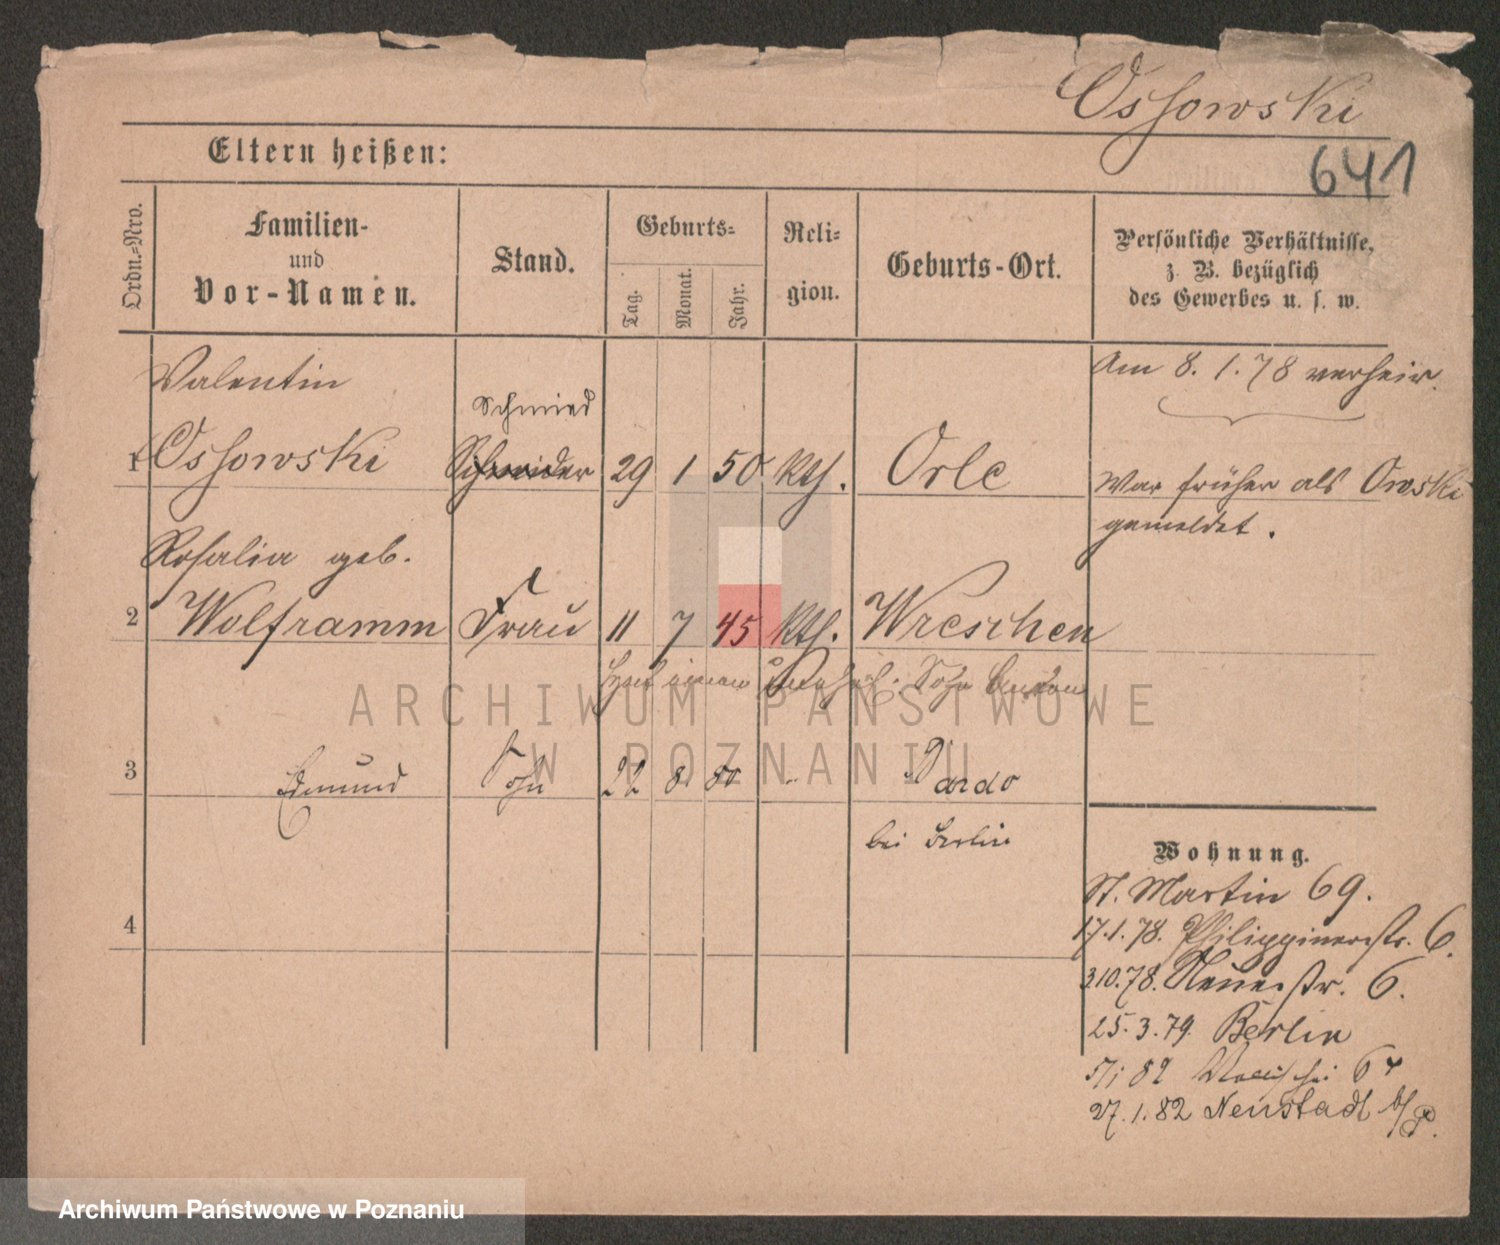 Ossowski
641
Eltern heißen:
Ordn.=Nro.
Familien-
und
Vor-Namen.
Stand.
Geburts=
Tag.
Monat.
Jahr.
Reli=
gion.
Geburts-Ort.
Persönliche Verhältnisse,
z. B. bezüglich
des Gewerbes u. s. w.
Valentin
Am 8. 1. 78 verheir.
Schmied
1 Ossowski Schneider 29 1 50 kth. Orle
War früher als Owski
gemeldet.
Rosalia geb.
2 Wolframm Frau 11 7 45 kth. Wreschen
Sohn
3 Edmund Sohn 22 8 80
bei Berlin
4
Wohnung.
St. Martin 69.
17.1.78. Philippinerstr. 6.
3 10.78. Neuestr. 6.
25.3.79. Berlin
82
27.1.82 Neustadt b/P.
ARCHIWUM PAŃSTWOWE
W POZNANIU
Archiwum Państwowe w Poznaniu